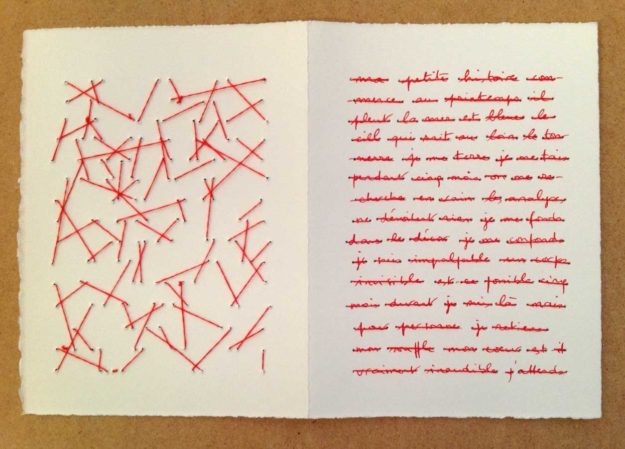 ma petite histoire com-
mence au printemps il
pleut la mer est bleue le
ciel qui rait au loin le ton-
nerre je me terre je me tais
pendant cinq mois on me re-
cherche en vain les analyses
ne dévoilent rien je me fonds
dans le décor je me confonds
je suis impalpable un corps
invisible est-ce possible cinq
mois durant je suis là mais
pour personne je retiens
mon souffle mon cœur est-il
vraiment inaudible j'attends